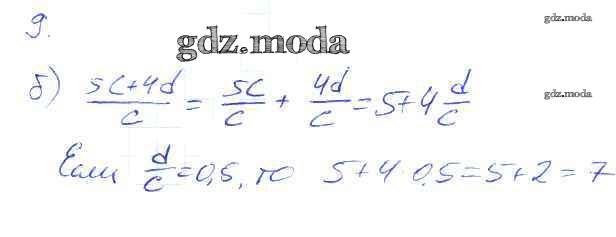 9.
gdz.moda
gdz.moda
б) (5c+4d)/c = 5c/c + 4d/c = 5+4 d/c
gdz.moda
Если d/c = 0,5, то 5+4·0,5=5+2=7